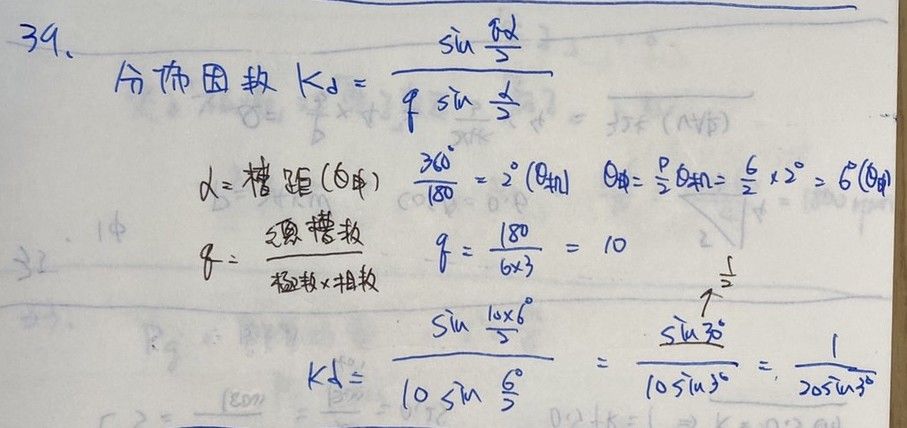 39.
分佈因數 Kd = sin qα/2 / q sin α/2
α = 槽距(θ電) 360°/180 = 2°(θ機) θ電 = P/2 θ機 = 6/2 × 2° = 6°(θ電)
q = 總槽數/極數×相數 q = 180/6×3 = 10
1/2
Kd = sin 10×6°/2 / 10 sin 6°/2 = sin30°/10sin3° = 1/20sin3°